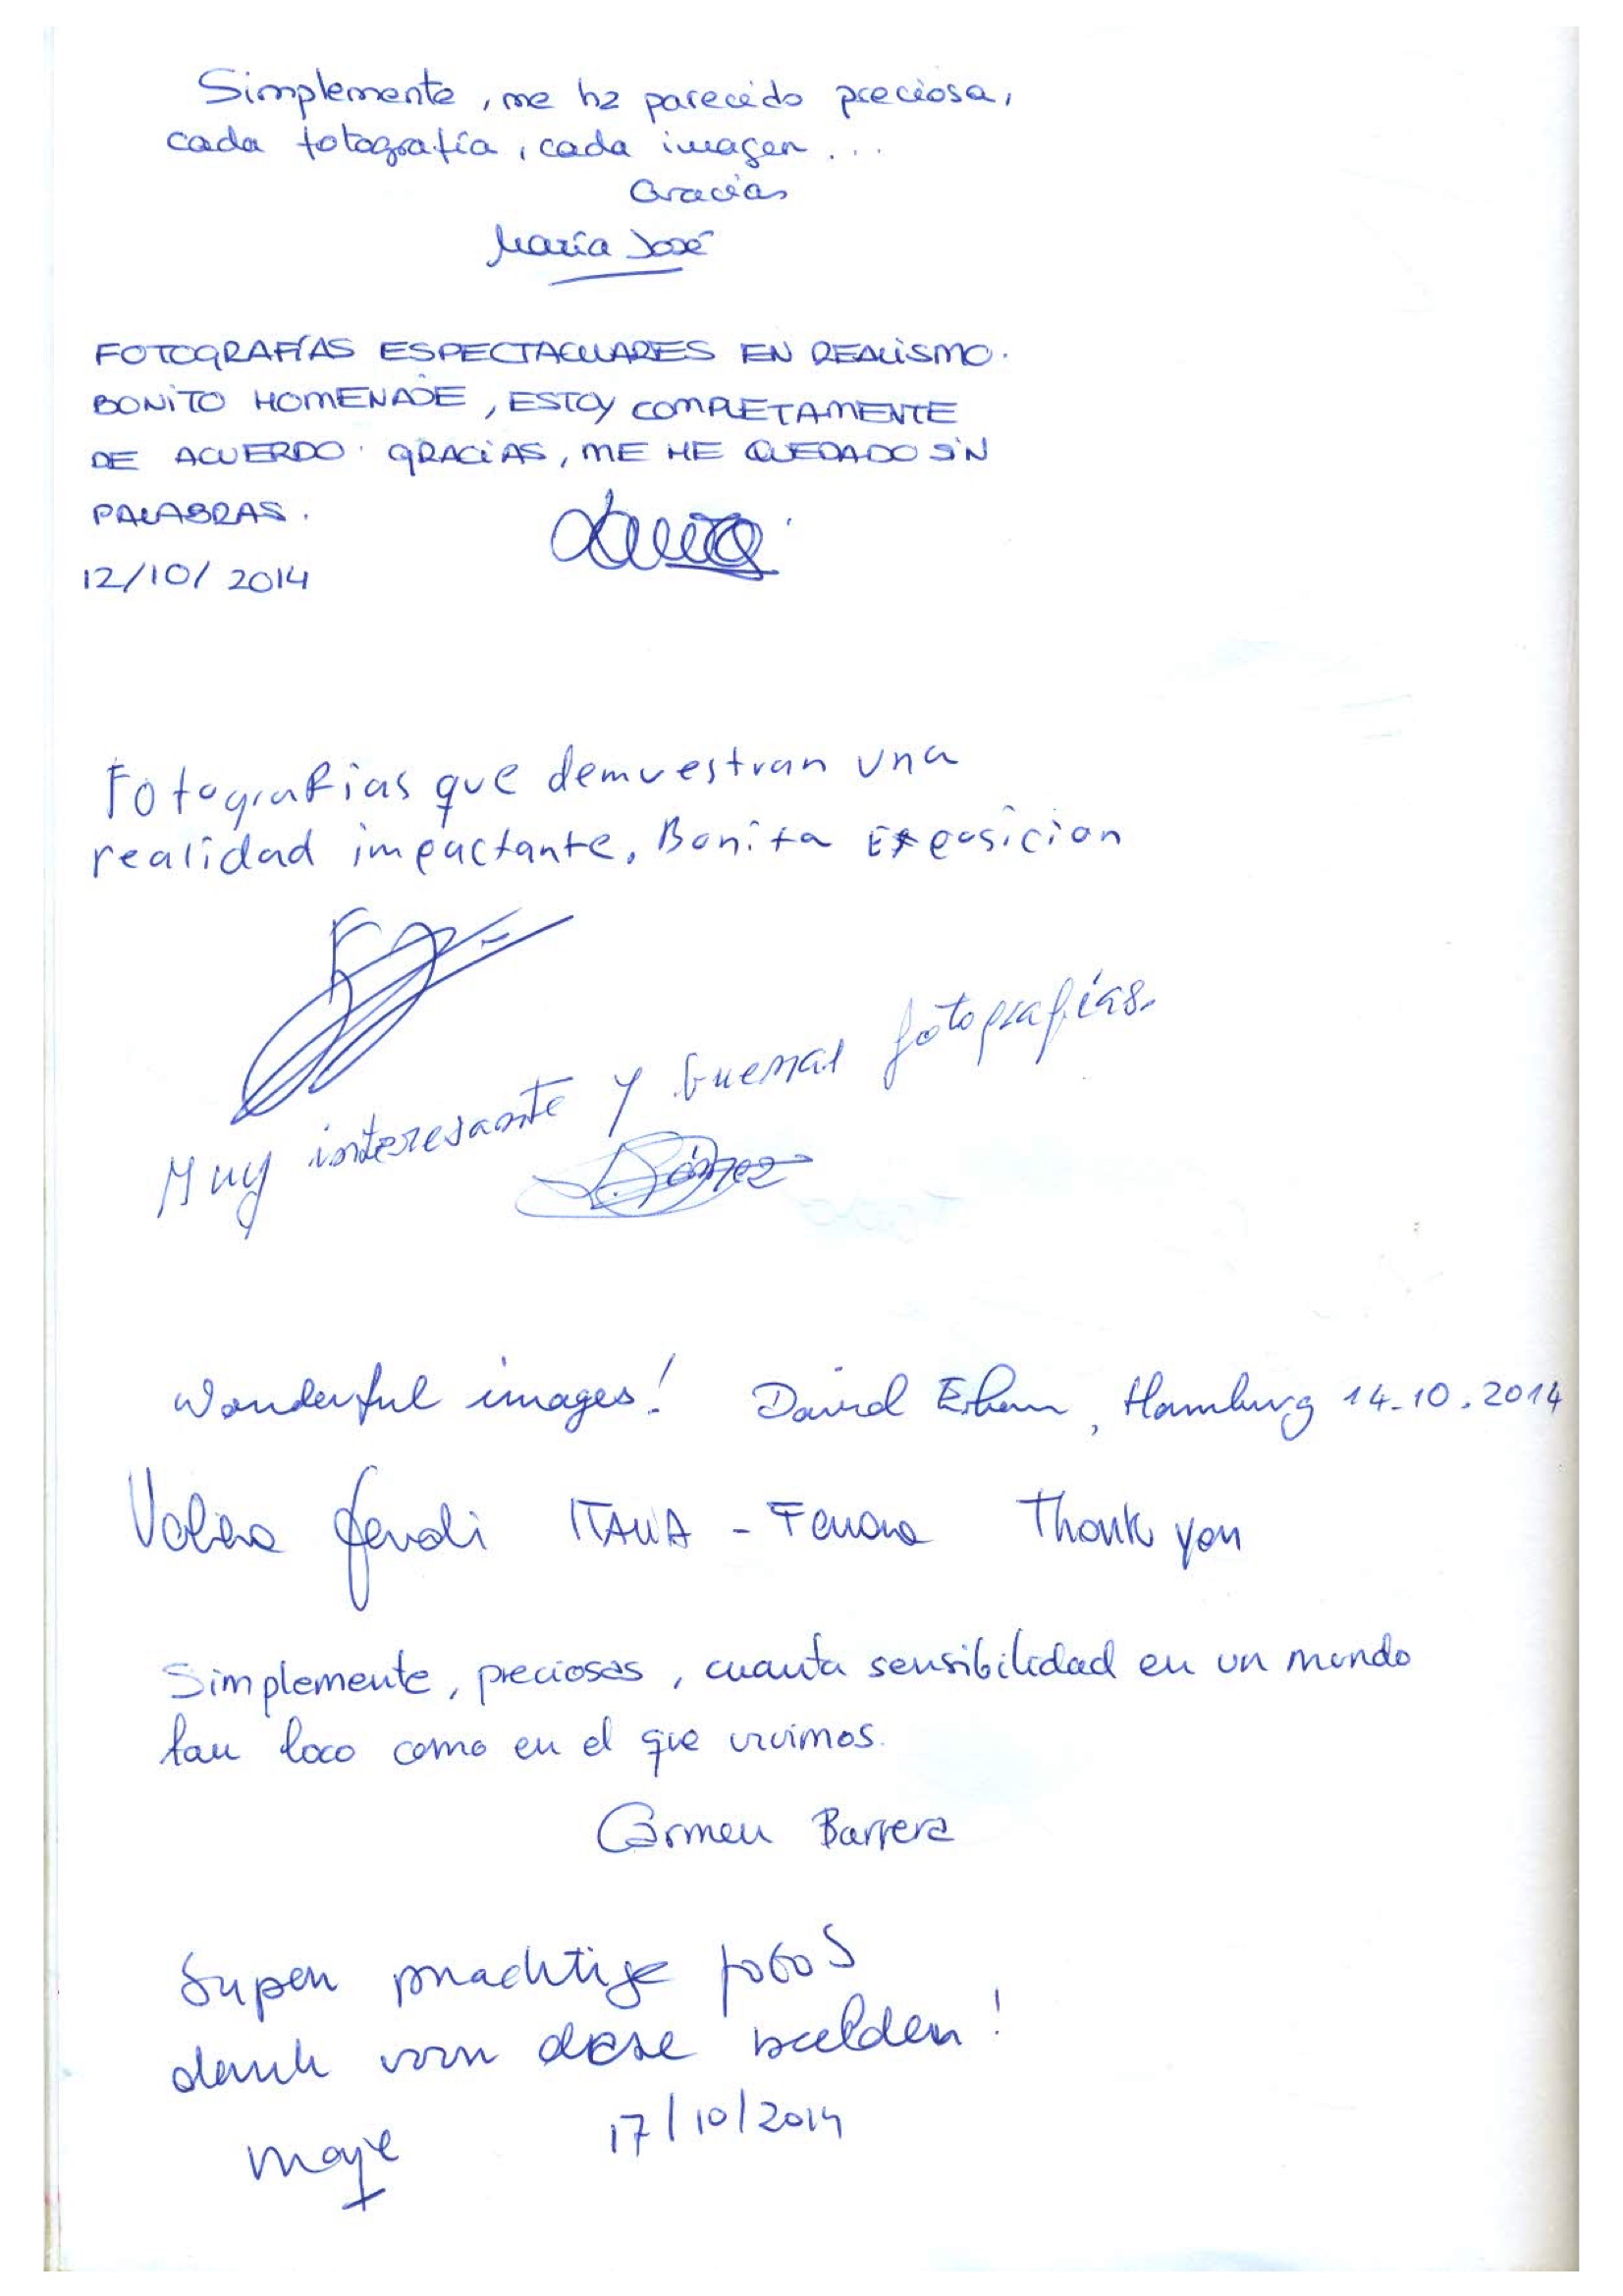 Simplemente, me ha parecido preciosa,
cada fotografía, cada imagen...
Gracias
María José
FOTOGRAFÍAS ESPECTACULARES EN REALISMO.
BONITO HOMENAJE, ESTOY COMPLETAMENTE
DE ACUERDO. GRACIAS, ME HE QUEDADO SIN
PALABRAS.
12/10/2014
Fotografias que demuestran una
realidad impactante. Bonita Exposicion
Muy interesante y buenas fotografías.
Wonderful images! David, Hamburg 14.10.2014
ITALIA - Ferrara Thank you
Simplemente, preciosas, cuanta sensibilidad en un mundo
tan loco como en el que vivimos.
Carmen Barrera
Super prachtige fotos
dank voor deze beelden!
17/10/2014